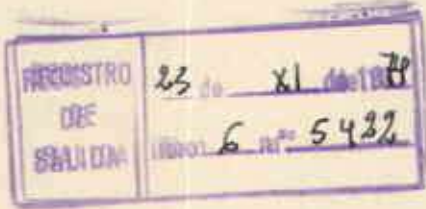 REGISTRO
DE
SALIDA
23 de XI de 19
Libro 6 Nº 5422